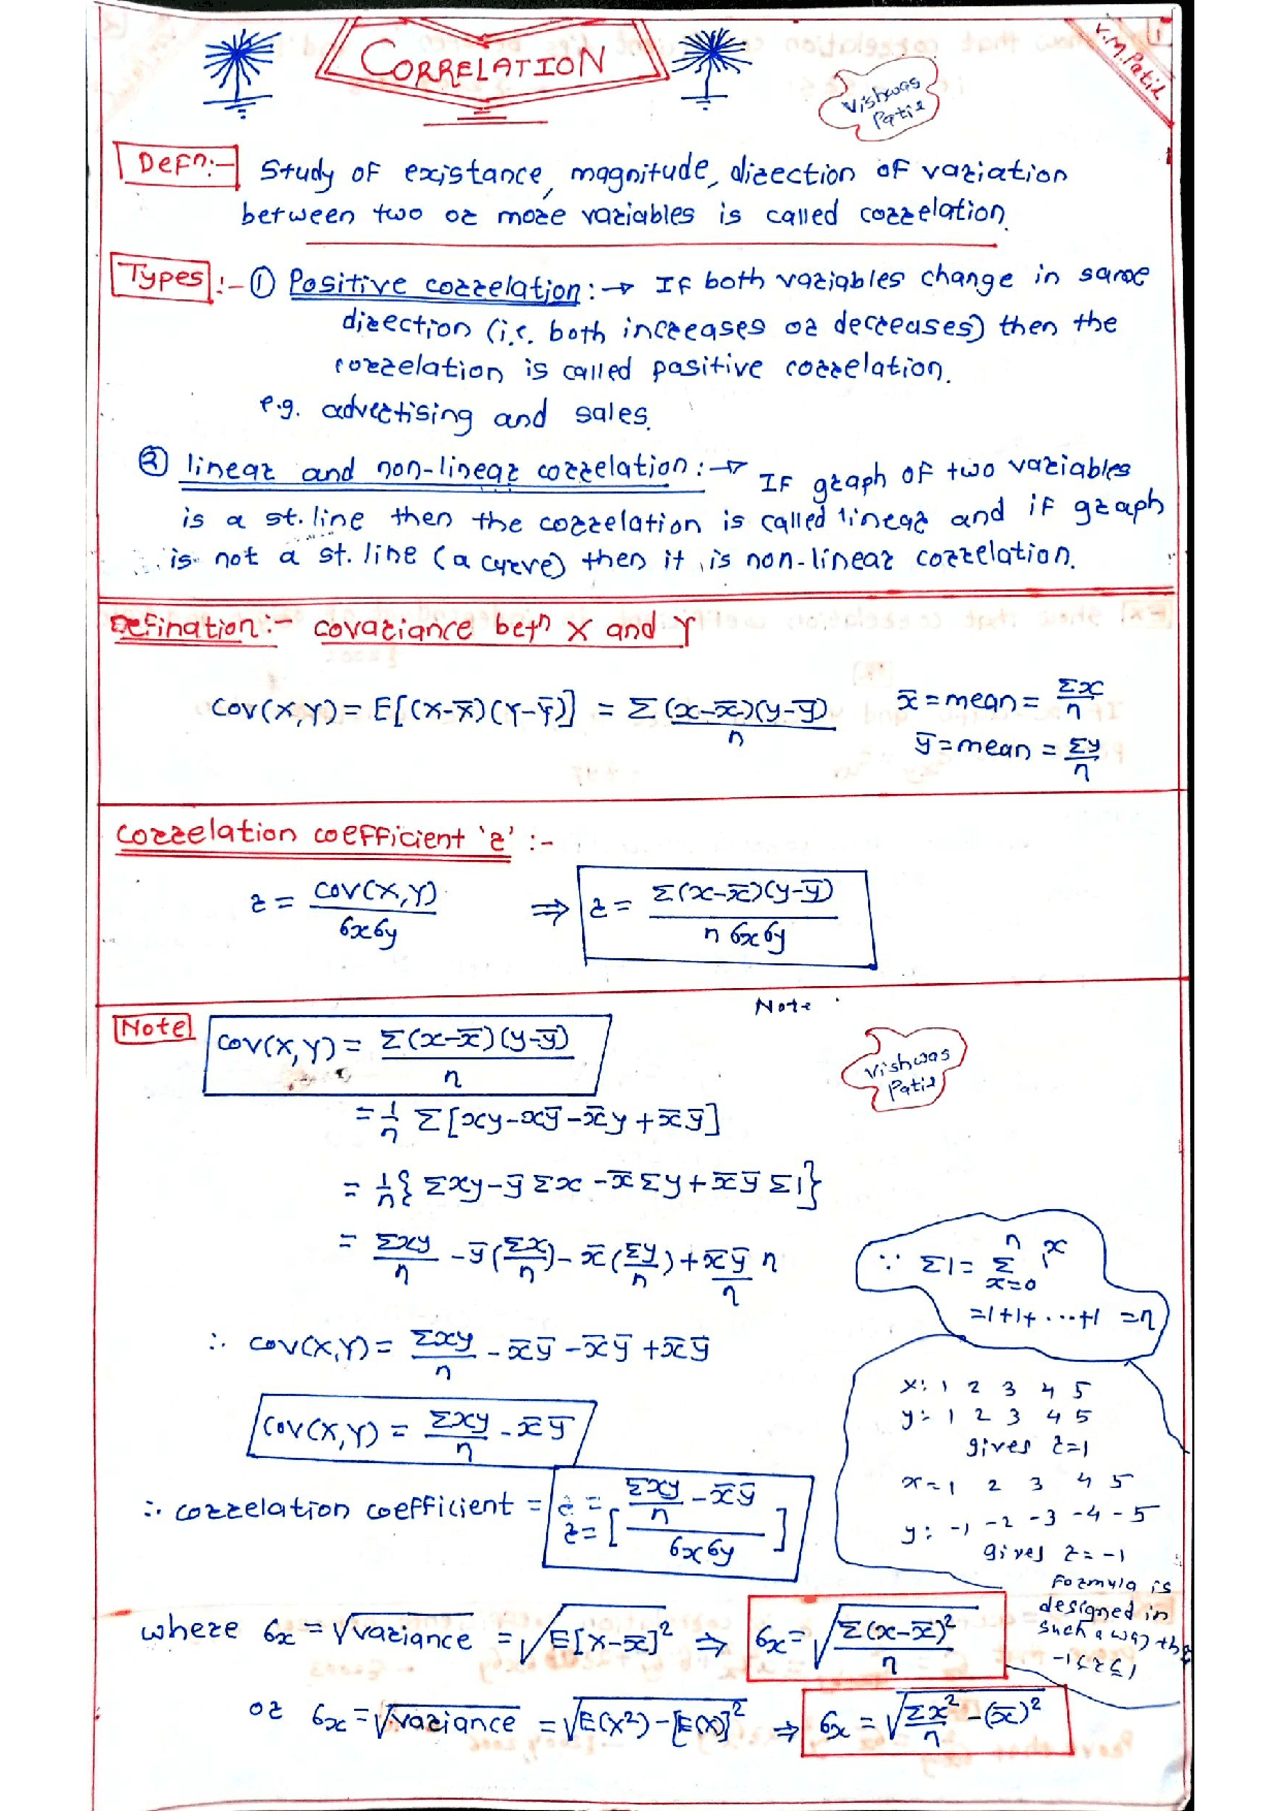 CORRELATION
V.M.Patil
Vishwas
Patil
Defn:- Study of existance, magnitude, direction of variation
between two or more variables is called correlation.
Types :- ① Positive correlation :→ If both variables change in same
direction (i.e. both increases or decreases) then the
correlation is called positive correlation.
e.g. advertising and sales.
② linear and non-linear correlation :→ If graph of two variables
is a st. line then the correlation is called linear and if graph
is not a st. line (a curve) then it is non-linear correlation.
Defination:- covariance betn X and Y
cov(X,Y) = E[(X-x̄)(Y-ȳ)] = Σ(x-x̄)(y-ȳ)/n
x̄ = mean = Σx/n
ȳ = mean = Σy/n
correlation coefficient 'r' :-
r = cov(X,Y)/σxσy ⇒ r = Σ(x-x̄)(y-ȳ)/n σxσy
Note
Note cov(X,Y) = Σ(x-x̄)(y-ȳ)/n
Vishwas
Patil
= 1/n Σ[xy-xȳ-x̄y+x̄ȳ]
= 1/n{Σxy-ȳΣx-x̄Σy+x̄ȳΣ1}
= Σxy/n - ȳ(Σx/n) - x̄(Σy/n) + x̄ȳ/n n
∵ Σ1 = Σ_{x=0}^{n} 1^x
=1+1+...+1 =n
∴ cov(X,Y) = Σxy/n - x̄ȳ - x̄ȳ + x̄ȳ
cov(X,Y) = Σxy/n - x̄ȳ
x: 1 2 3 4 5
y: 1 2 3 4 5
gives r=1
x=1 2 3 4 5
y: -1 -2 -3 -4 -5
gives r=-1
Formula is
designed in
such a way tha
-1≤r≤1
∴ correlation coefficient = r = [(Σxy/n - x̄ȳ)/σxσy]
where σx = √variance = √E[X-x̄]² ⇒ σx = √Σ(x-x̄)²/n
or σx = √variance = √E(X²)-[E(X)]² ⇒ σx = √Σx²/n - (x̄)²